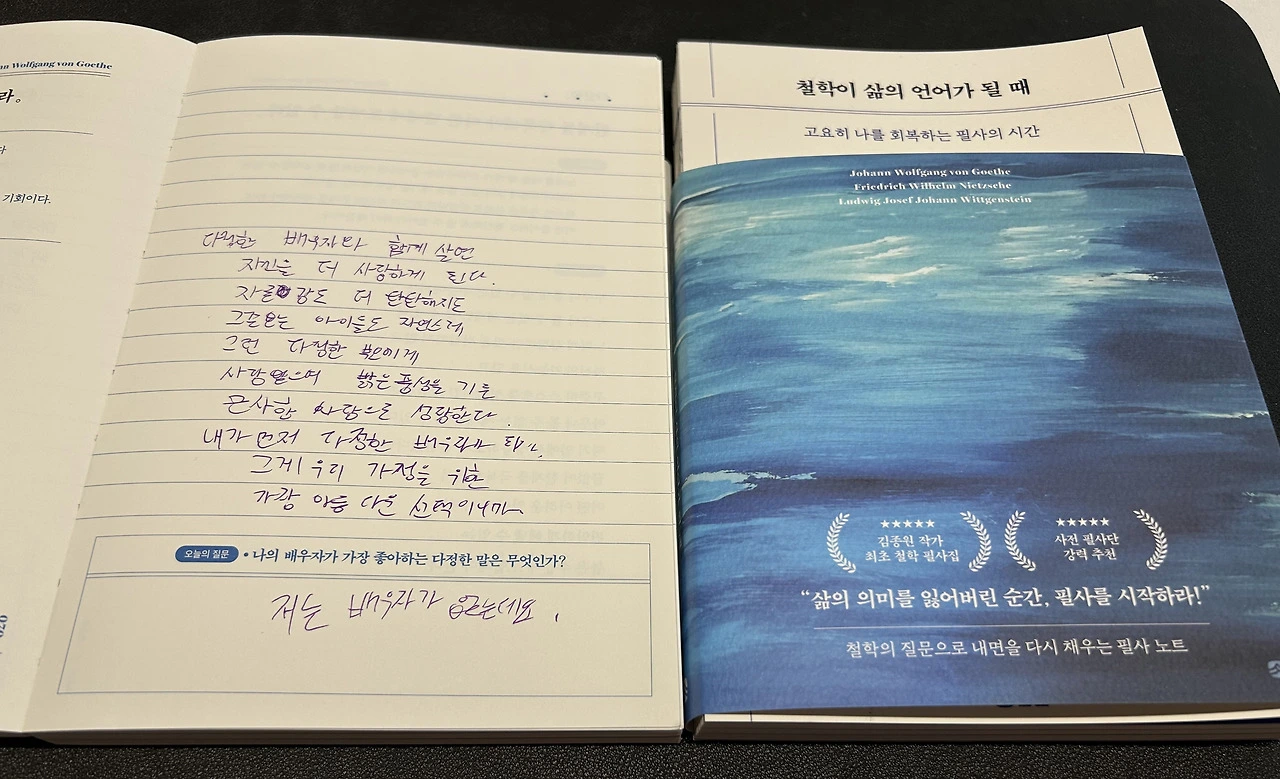 nn Wolfgang von Goethe
라。
다
기회이다.
다정한 배우자와 함께 살면
자신을 더 사랑하게 된다.
자존감도 더 탄탄해지므로
그 아이들도 자연스레
그런 다정한 부모에게
사랑받으며 밝은 품성을 기른
근사한 사람으로 성장한다.
내가 먼저 다정한 배우자가 되자.
그게 우리 가정을 위한
가장 아름다운 선택이니까.
오늘의 질문 • 나의 배우자가 가장 좋아하는 다정한 말은 무엇인가?
저는 배우자가 없는데요.
철학이 삶의 언어가 될 때
고요히 나를 회복하는 필사의 시간
Johann Wolfgang von Goethe
Friedrich Wilhelm Nietzsche
Ludwig Josef Johann Wittgenstein
★★★★★ ★★★★★
김종원 작가 사전 필사단
최초 철학 필사집 강력 추천
“삶의 의미를 잃어버린 순간, 필사를 시작하라!”
철학의 질문으로 내면을 다시 채우는 필사 노트